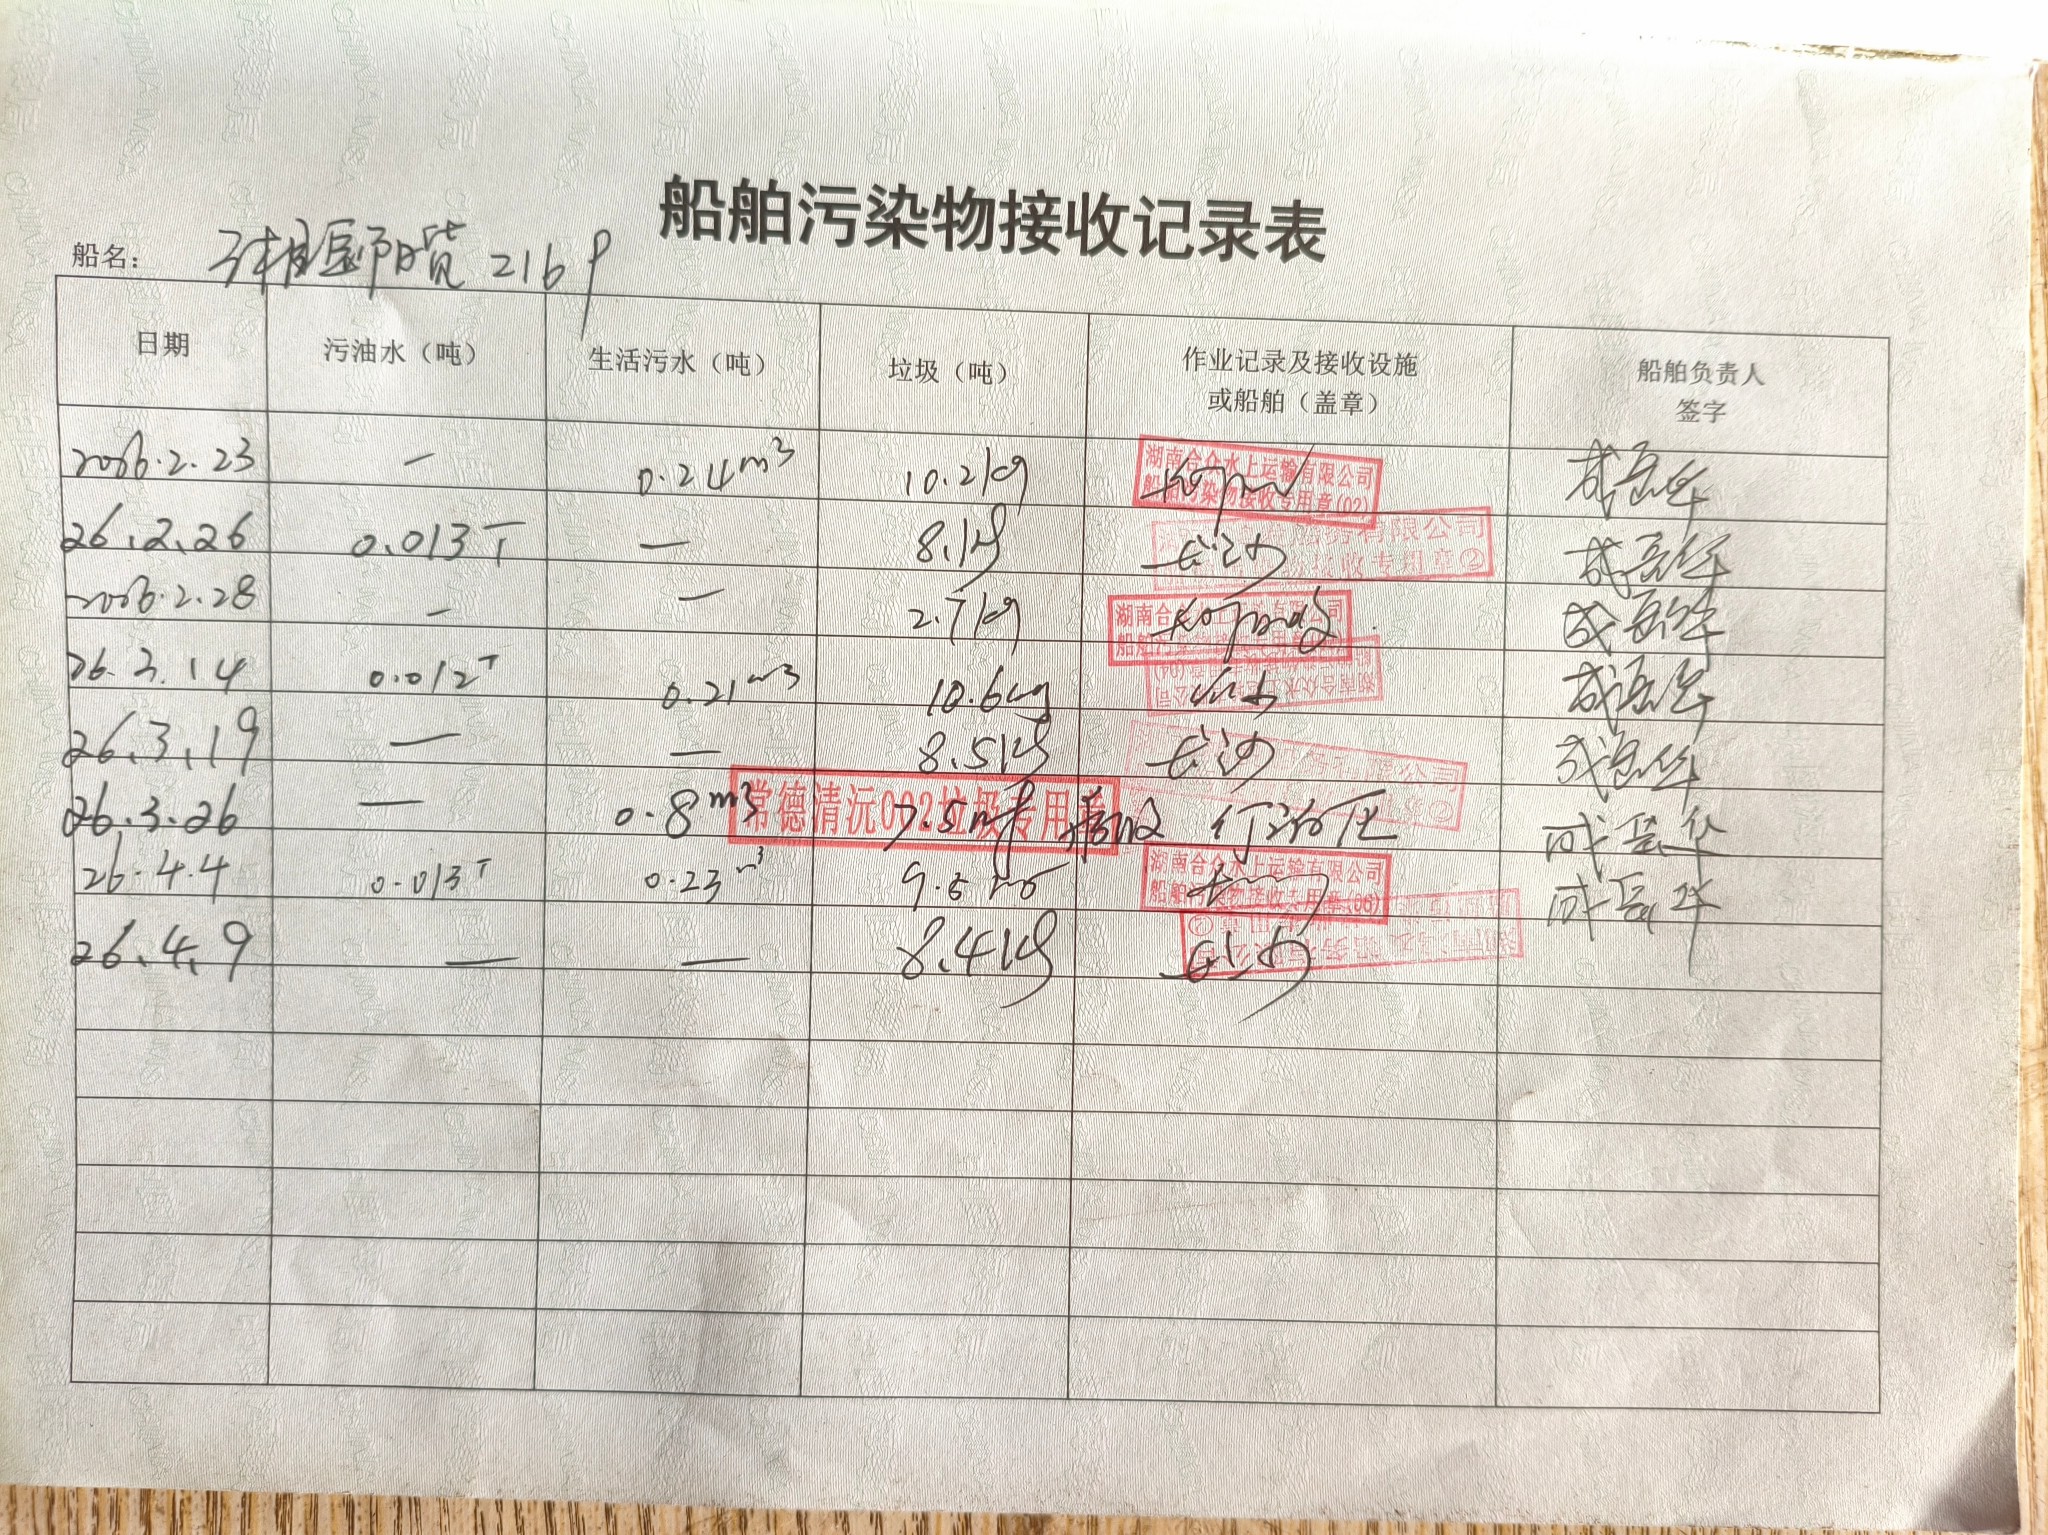 船舶污染物接收记录表
船名： 湘岳阳货 2169
日期 污油水（吨） 生活污水（吨） 垃圾（吨） 作业记录及接收设施或船舶（盖章） 船舶负责人签字
2026.2.23 — 0.24m³ 10.2kg 湖南合众水上运输有限公司 船舶污染物接收专用章(02) 成岳华
26.2.26 0.013T — 8.1kg 长沙 有限公司 接收专用章② 成岳华
2026.2.28 — — 2.7kg 湖南合众 有限公司 成岳华
26.3.14 0.012T 0.21m³ 10.6kg 湖南合众水 (04) 成岳华
26.3.19 — — 8.5kg 长沙 有限公司 成岳华
26.3.26 — 0.8m³ 7.5 常德清沅002垃圾专用章 成岳华
26.4.4 0.013T 0.23m³ 9.5 湖南合众水上运输有限公司 船舶污染物接收专用章(06) 成岳华
26.4.9 — — 8.4kg 长沙